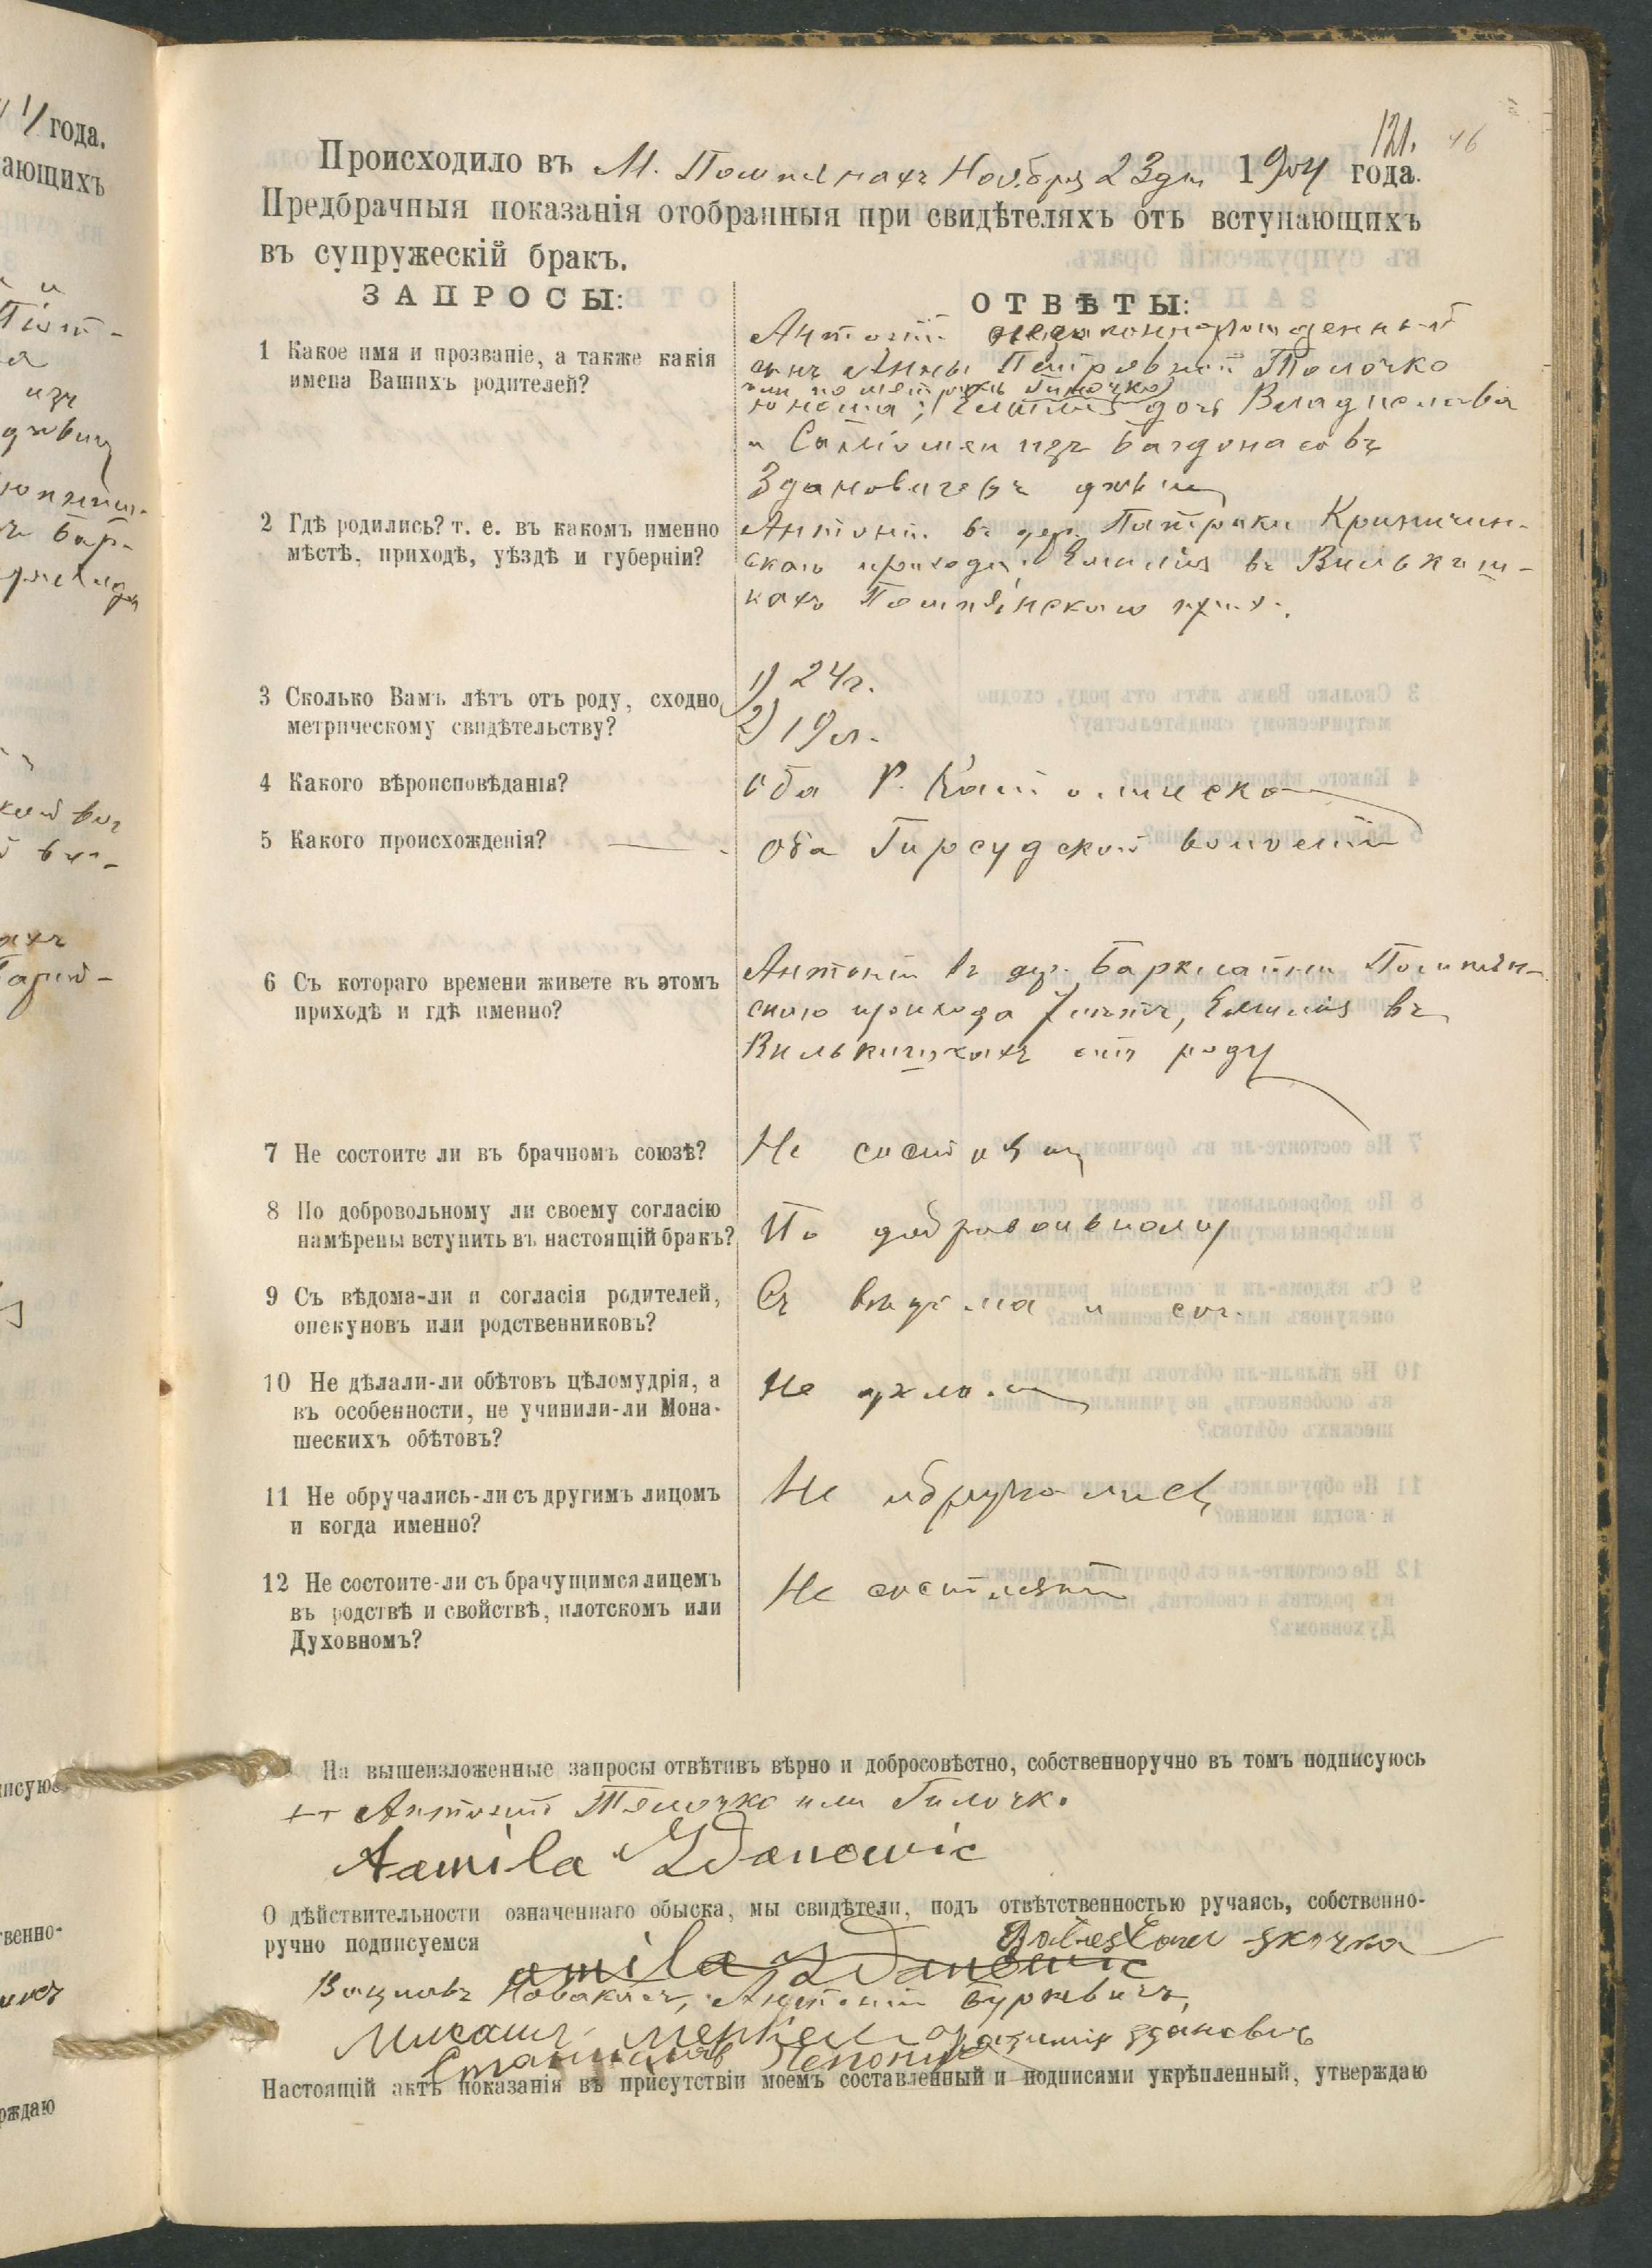 121. 46
Происходило въ М. Помпянахъ Ноября 23 дня 1904 года.
Предбрачныя показанія отобранныя при свидѣтеляхъ отъ вступающихъ
въ супружескій бракъ.
ЗАПРОСЫ:
ОТВѢТЫ:
1 Какое имя и прозваніе, а также какія
имена Вашихъ родителей?
Антоній незаконнорожденный
сынъ Анны Петровной Толочко
или по метрикѣ Гилочко
юноша; Емилія дочь Владислава
и Саломеи изъ Багдонасовъ
Здановичевъ дѣвица
2 Гдѣ родились? т. е. въ какомъ именно
мѣстѣ, приходѣ, уѣздѣ и губерніи?
Антоній въ дер. Патраки Криничин-
скаго прихода, Емилія въ Вилькиш-
кахъ Помпянскаго прих.
3 Сколько Вамъ лѣтъ отъ роду, сходно
метрическому свидѣтельству?
1) 24 г.
2) 19 л.
4 Какого вѣроисповѣданія?
Оба Р. Католическа
5 Какого происхожденія?
Оба Гирсудской волости
6 Съ котораго времени живете въ этомъ
приходѣ и гдѣ именно?
Антоній въ дер. Барклайни Помпян-
скаго прихода 7 лѣтъ, Емилія въ
Вилькишкахъ отъ роду
7 Не состоите ли въ брачномъ союзѣ?
Не состоимъ
8 По добровольному ли своему согласію
намѣрены вступить въ настоящій бракъ?
По добровольному
9 Съ вѣдома-ли и согласія родителей,
опекуновъ или родственниковъ?
Съ вѣдома и сог.
10 Не дѣлали-ли обѣтовъ цѣломудрія, а
въ особенности, не учинили-ли Мона-
шескихъ обѣтовъ?
Не дѣлали
11 Не обручались-ли съ другимъ лицомъ
и когда именно?
Не обручались
12 Не состоите-ли съ брачущимся лицемъ
въ родствѣ и свойствѣ, плотскомъ или
Духовномъ?
Не состоимъ
На вышеизложенные запросы отвѣтивъ вѣрно и добросовѣстно, собственноручно въ томъ подписуюсь
++ Антоній Толочко или Гилочк.
Aamila Zdanowic
О дѣйствительности означеннаго обыска, мы свидѣтели, подъ отвѣтственностью ручаясь, собственно-
ручно подписуемся
amila Zdanowic
Вацлавъ Новакасъ, Антоній Буркевичъ,
Казимір Здановичъ
Станиславъ
Настоящій актъ показанія въ присутствіи моемъ составленный и подписями укрѣпленный, утверждаю